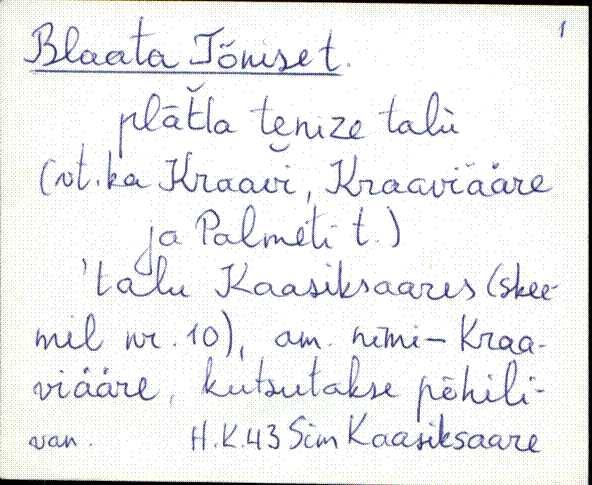 1
Blaata Tõniset.
plǟtla tęnize talù
(vt. ka Kraavi, Kraaviääre
ja Palmeti t.)
'talu Kaasiksaares (skee-
mil nr. 10), am. nimi – Kraa-
viääre, kutsutakse põhili-
van. H.K.43 Sim Kaasiksaare